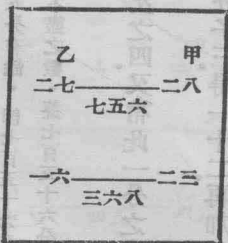 乙 甲
二七 二八
七五六
一六 二三
三六八